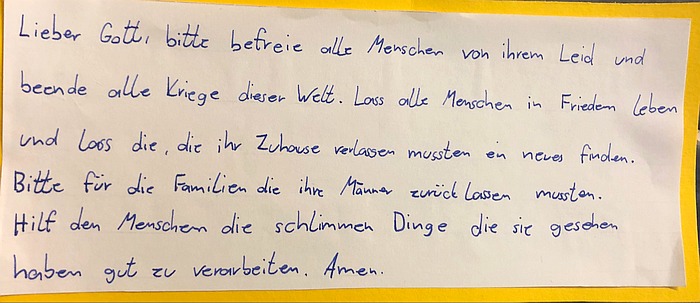 Lieber Gott, bitte befreie alle Menschen von ihrem Leid und
beende alle Kriege dieser Welt. Lass alle Menschen in Frieden leben
und lass die, die ihr Zuhause verlassen mussten ein neues finden.
Bitte für die Familien die ihre Männer zurück lassen mussten.
Hilf den Menschen die schlimmen Dinge die sie gesehen
haben gut zu verarbeiten. Amen.